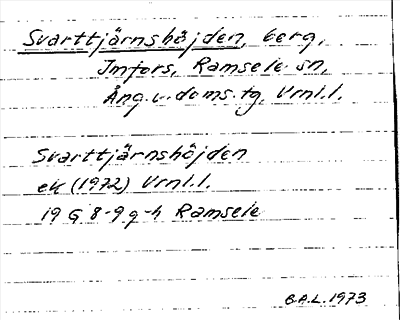 Svarttjärnshöjden, berg,
Imfors, Ramsele sn,
Ång.v.doms.tg, Vrnl.l.
Svarttjärnshöjden
ek (1972) Vrnl.l.
19 G 8-9 g-h Ramsele
B.A.L. 1973